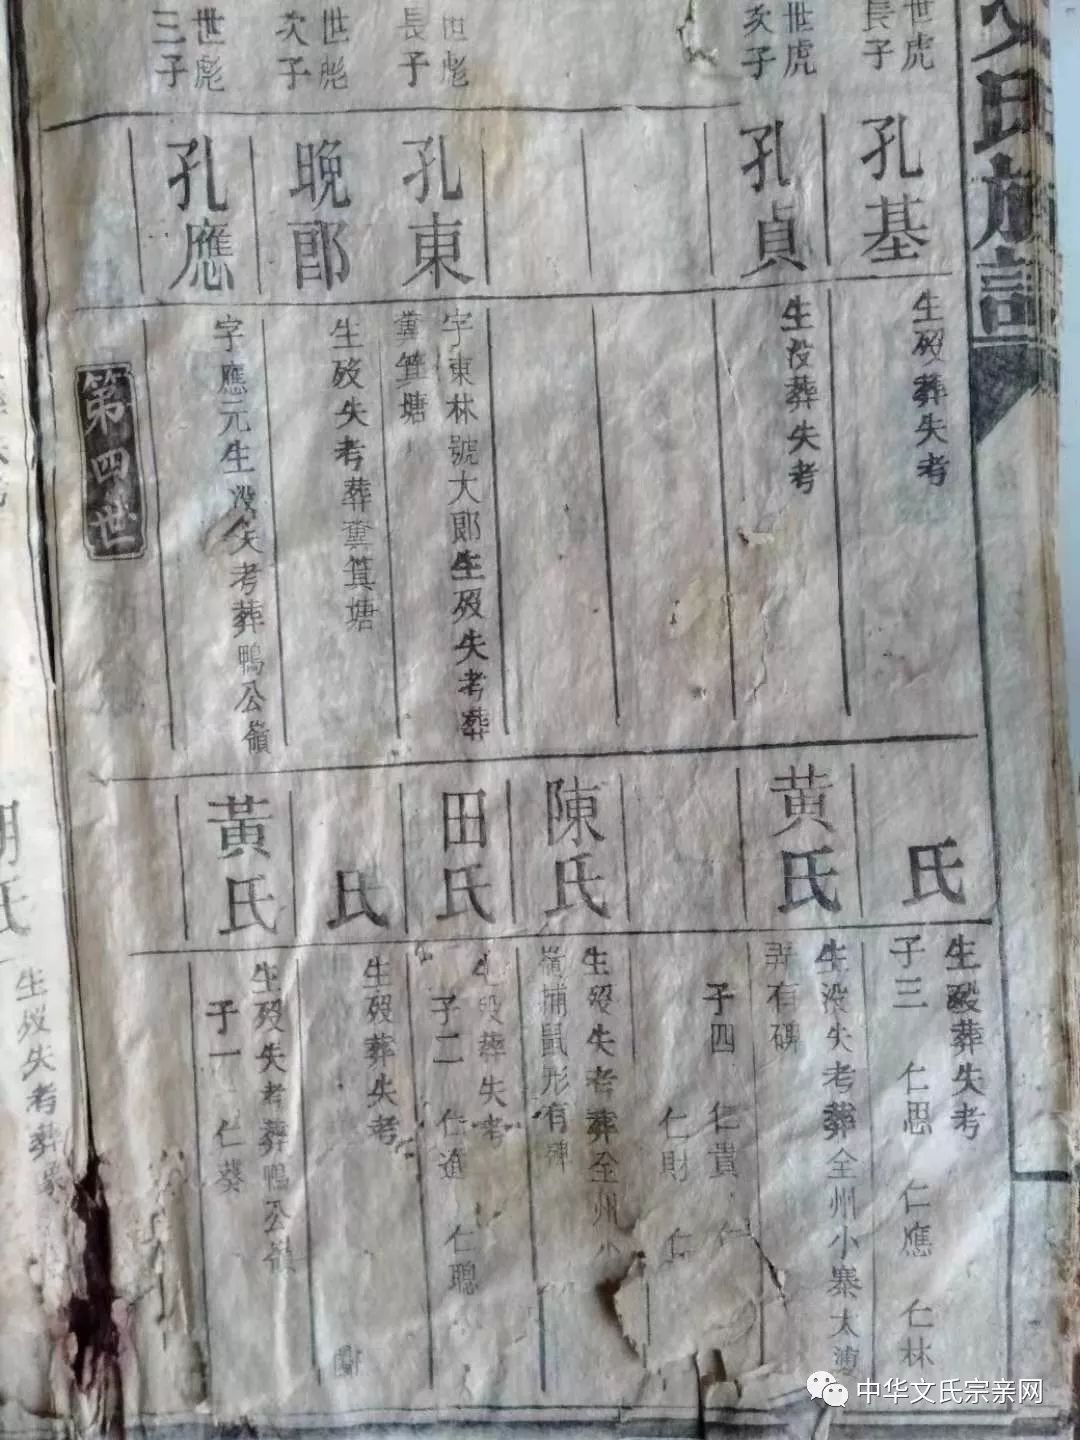 文氏族譜
世虎
長子
孔基
生殁葬失考
氏
生殁葬失考
子三 仁思 仁應 仁林
世虎
次子
孔貞
生没葬失考
黄氏
生没失考葬全州小寨太
弄有碑
子四 仁貴 仁
仁財 仁
陳氏
生殁失考葬全州小
捕鼠形有碑
世彪
長子
孔東
字東林號大郎生殁失考葬
糞箕塘
田氏
生殁葬失考
子二 仁進 仁聰
世彪
次子
晚郎
生殁失考葬糞箕塘
氏
生殁葬失考
世彪
三子
孔應
字應元生没失考葬鴨公嶺
黃氏
生殁失考葬鴨公嶺
子一 仁葵
第四世
氏
生殁失考葬
中华文氏宗亲网